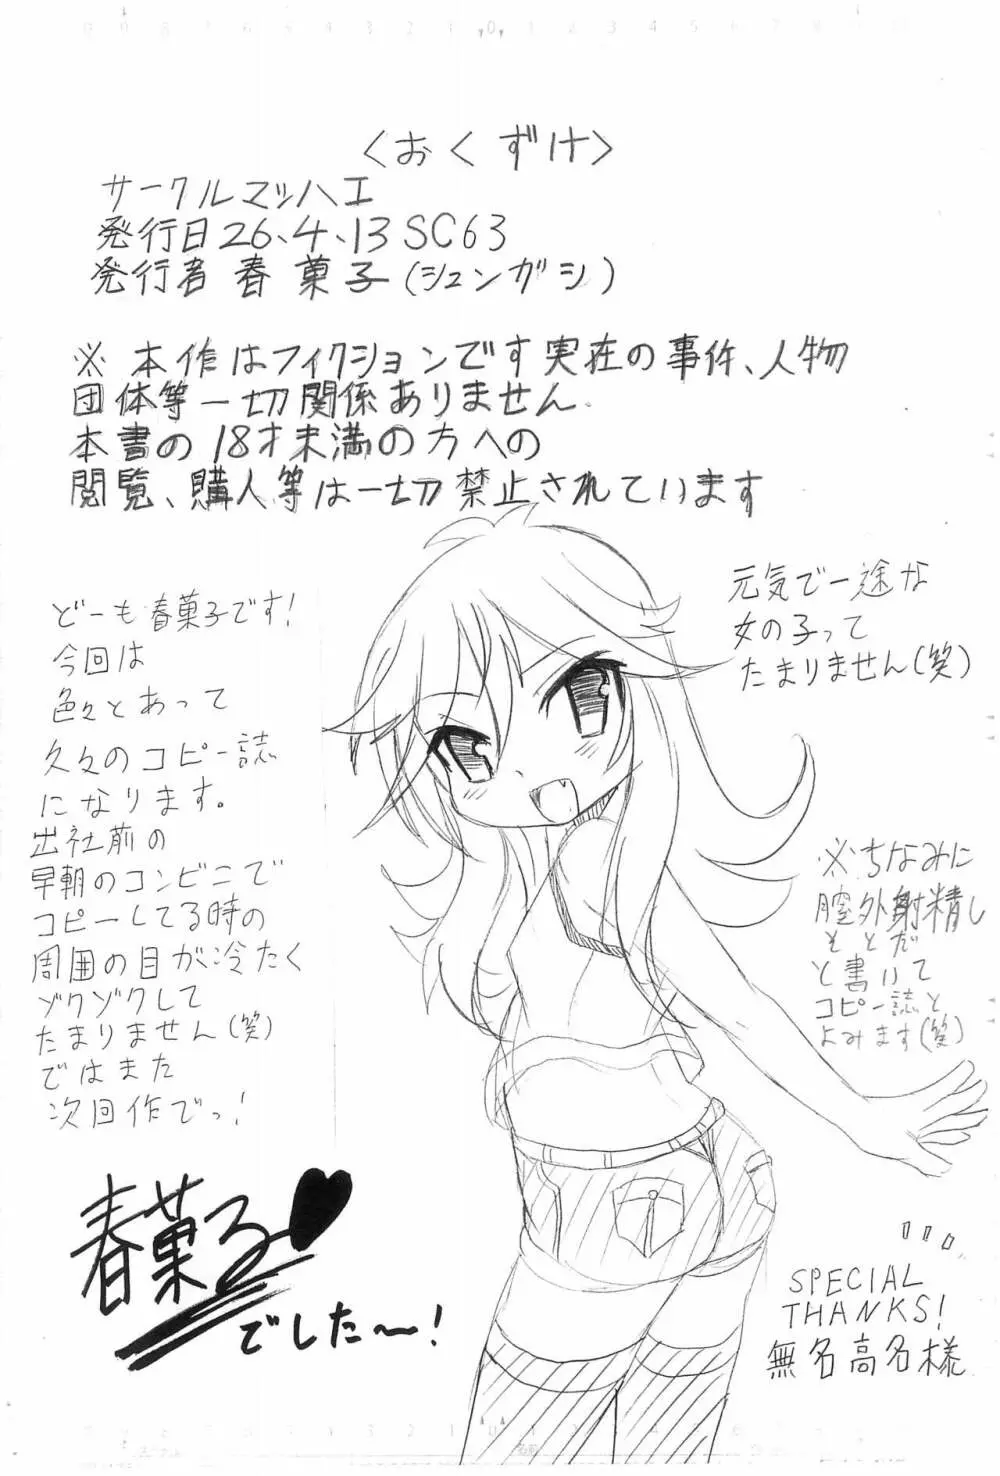 〈おくずけ〉
サークルマッハ工
発行日26、4、13 SC63
発行者 春菓子(シュンガシ)
※ 本作はフィクションです実在の事件、人物
団体等一切関係ありません.
本書の18才未満の方への
閲覧、購入等は一切禁止されています
どーも春菓子です!
今回は
色々とあって
久々のコピー誌
になります。
出社前の
早朝のコンビニで
コピーしてる時の
周囲の目が冷たく
ゾクゾクして
たまりません(笑)
ではまた
次回作でっ!
元気で一途な
女の子って
たまりません(笑)
※ちなみに
膣外射精し
そとだ
と書いて
コピー誌と
よみます(笑)
春菓子♥
でした〜!
SPECIAL
THANKS!
無名高名様